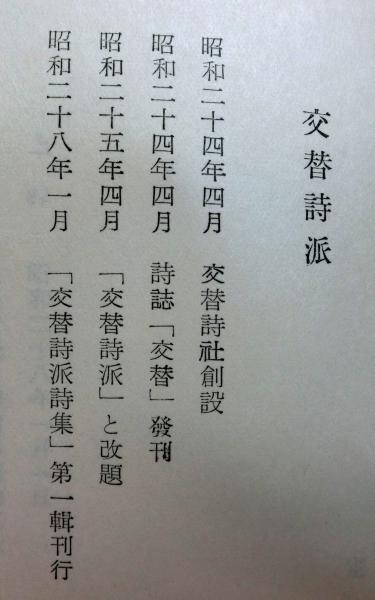 交替詩派
昭和二十四年四月 交替詩社創設
昭和二十四年四月 詩誌「交替」發刊
昭和二十五年四月 「交替詩派」と改題
昭和二十八年一月 「交替詩派詩集」第一輯刊行